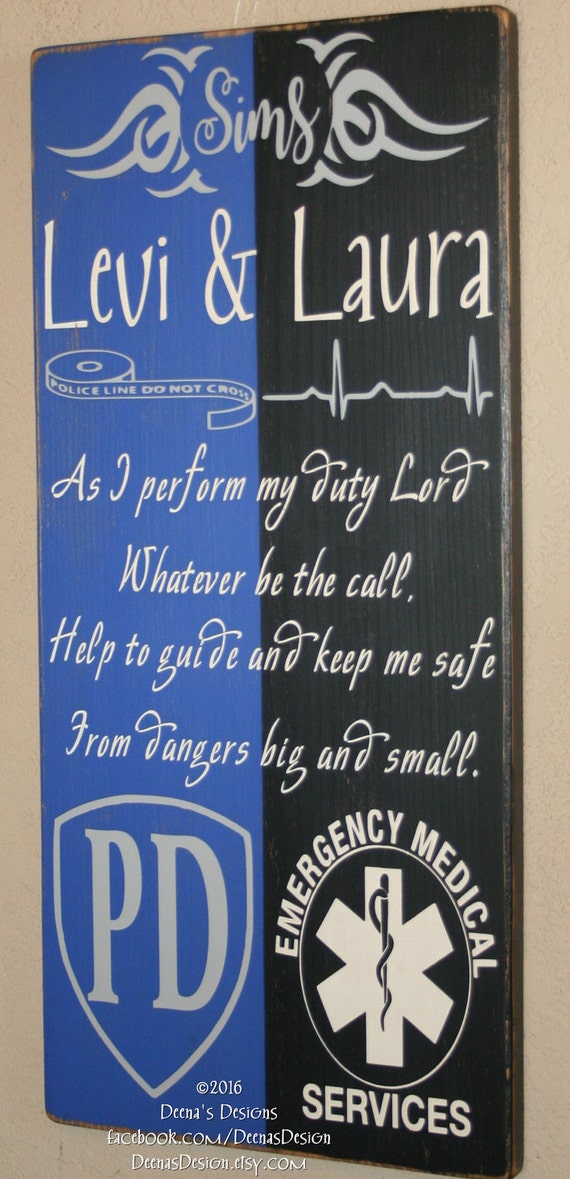 Sims
Levi & Laura
POLICE LINE DO NOT CROSS
As I perform my duty Lord
Whatever be the call,
Help to guide and keep me safe
From dangers big and small.
PD
EMERGENCY MEDICAL
SERVICES
©2016
Deena's Designs
facebook.com/DeenasDesign
DeenasDesign.etsy.com